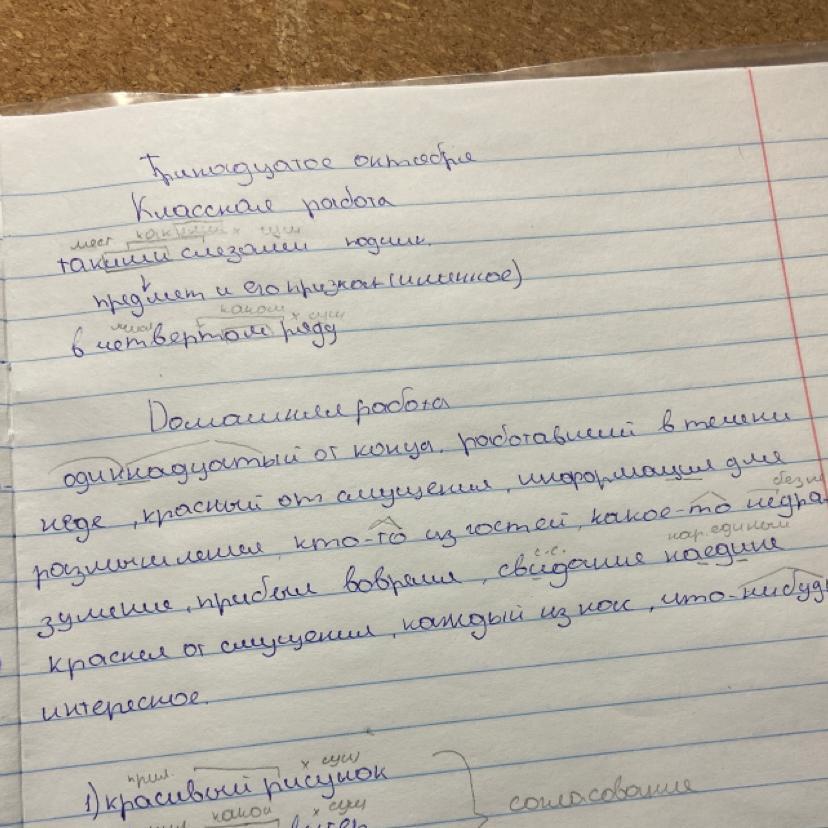 Тринадцатое октября
Классная работа
мест какими х сущ
такими слезами
предмет и его признак (именное)
каком х сущ
в четвертом ряду
Домашняя работа
одиннадцатый от конца, работавший в течени
неде, красный от смущения, информация для
безуд
размышления, кто-то из гостей, какое-то недра
с.с. нар. единым
зумение, прибыл вовремя, свидание наедине
краснел от смущения, каждый из нас, что-нибудь
интересное.
прил. х сущ
1) красивый рисунок
согласование
какой х сущ